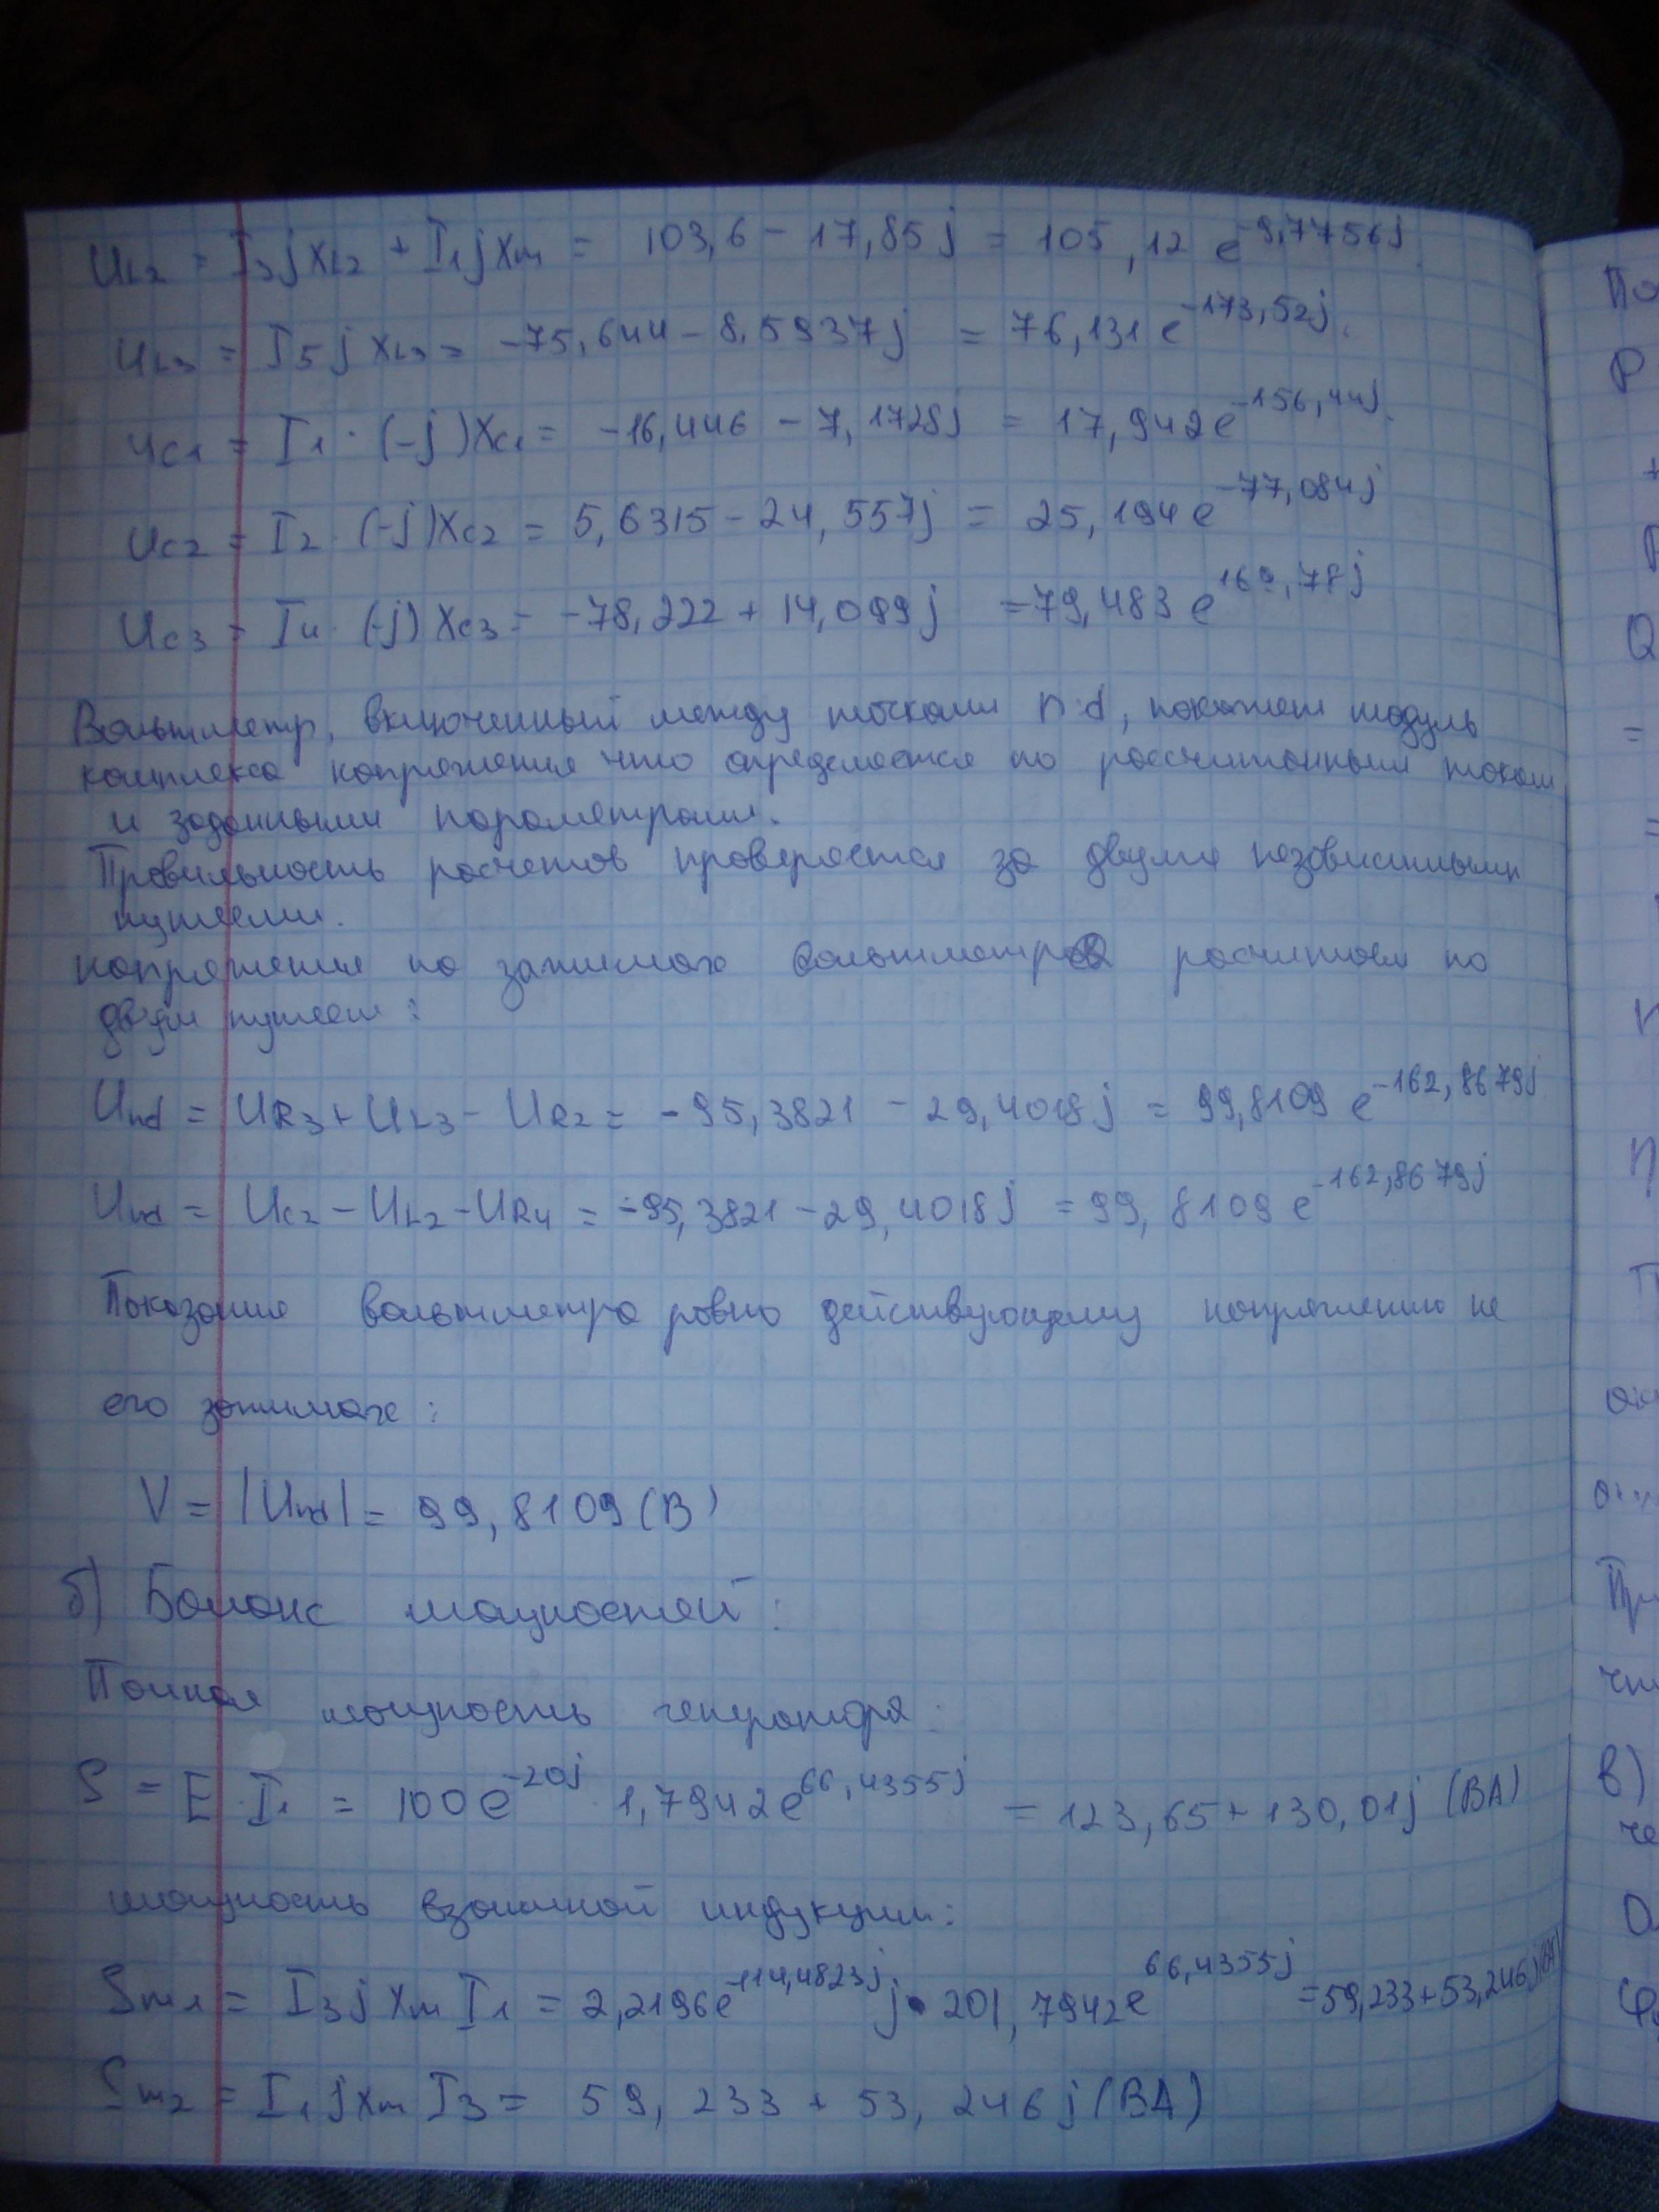 U_L2 = I_3 j X_L2 + I_1 j X_m = 103,6 - 17,85j = 105,12 e^-9,7756j
U_L3 = I_5 j X_L3 = -75,644 - 8,5937j = 76,131 e^-173,52j.
U_C1 = I_1 · (-j) X_C1 = -16,446 - 7,1728j = 17,942 e^-156,44j.
U_C2 = I_2 · (-j) X_C2 = 5,6315 - 24,557j = 25,194 e^-77,084j
U_C3 = I_4 · (-j) X_C3 = -78,222 + 14,099j = 79,483 e^169,78j
Вольтметр, включенный между точками n-d, покажет модуль
комплекса напряжения что определяется по рассчитанным токам
и заданными параметрами.
Правильность расчетов проверяется за двумя независимыми
путями.
напряжения на зажимах вольтметров расчитаем по
двум путем:
U_nd = U_R3 + U_L3 - U_R2 = -95,3821 - 29,4018j = 99,8109 e^-162,8679j
U_nd = U_C2 - U_L2 - U_R4 = -95,3821 - 29,4018j = 99,8109 e^-162,8679j
Показание вольтметра равно действующему напряжению на
его зажимах:
V = |U_nd| = 99,8109 (В)
б) Баланс мощностей:
Полная мощность генератора:
S = E · I_1 = 100 e^-20j · 1,7942 e^66,4355j = 123,65 + 130,01j (ВА)
мощность взаимной индукции:
S_m1 = I_3 j X_m I_1 = 2,2196 e^-114,4823j j · 201,7942 e^66,4355j = 59,233 + 53,246j (ВА)
S_m2 = I_1 j X_m I_3 = 59,233 + 53,246j (ВА)
По
Р
+
Q
=
=
П
ож
Пр
в)
че